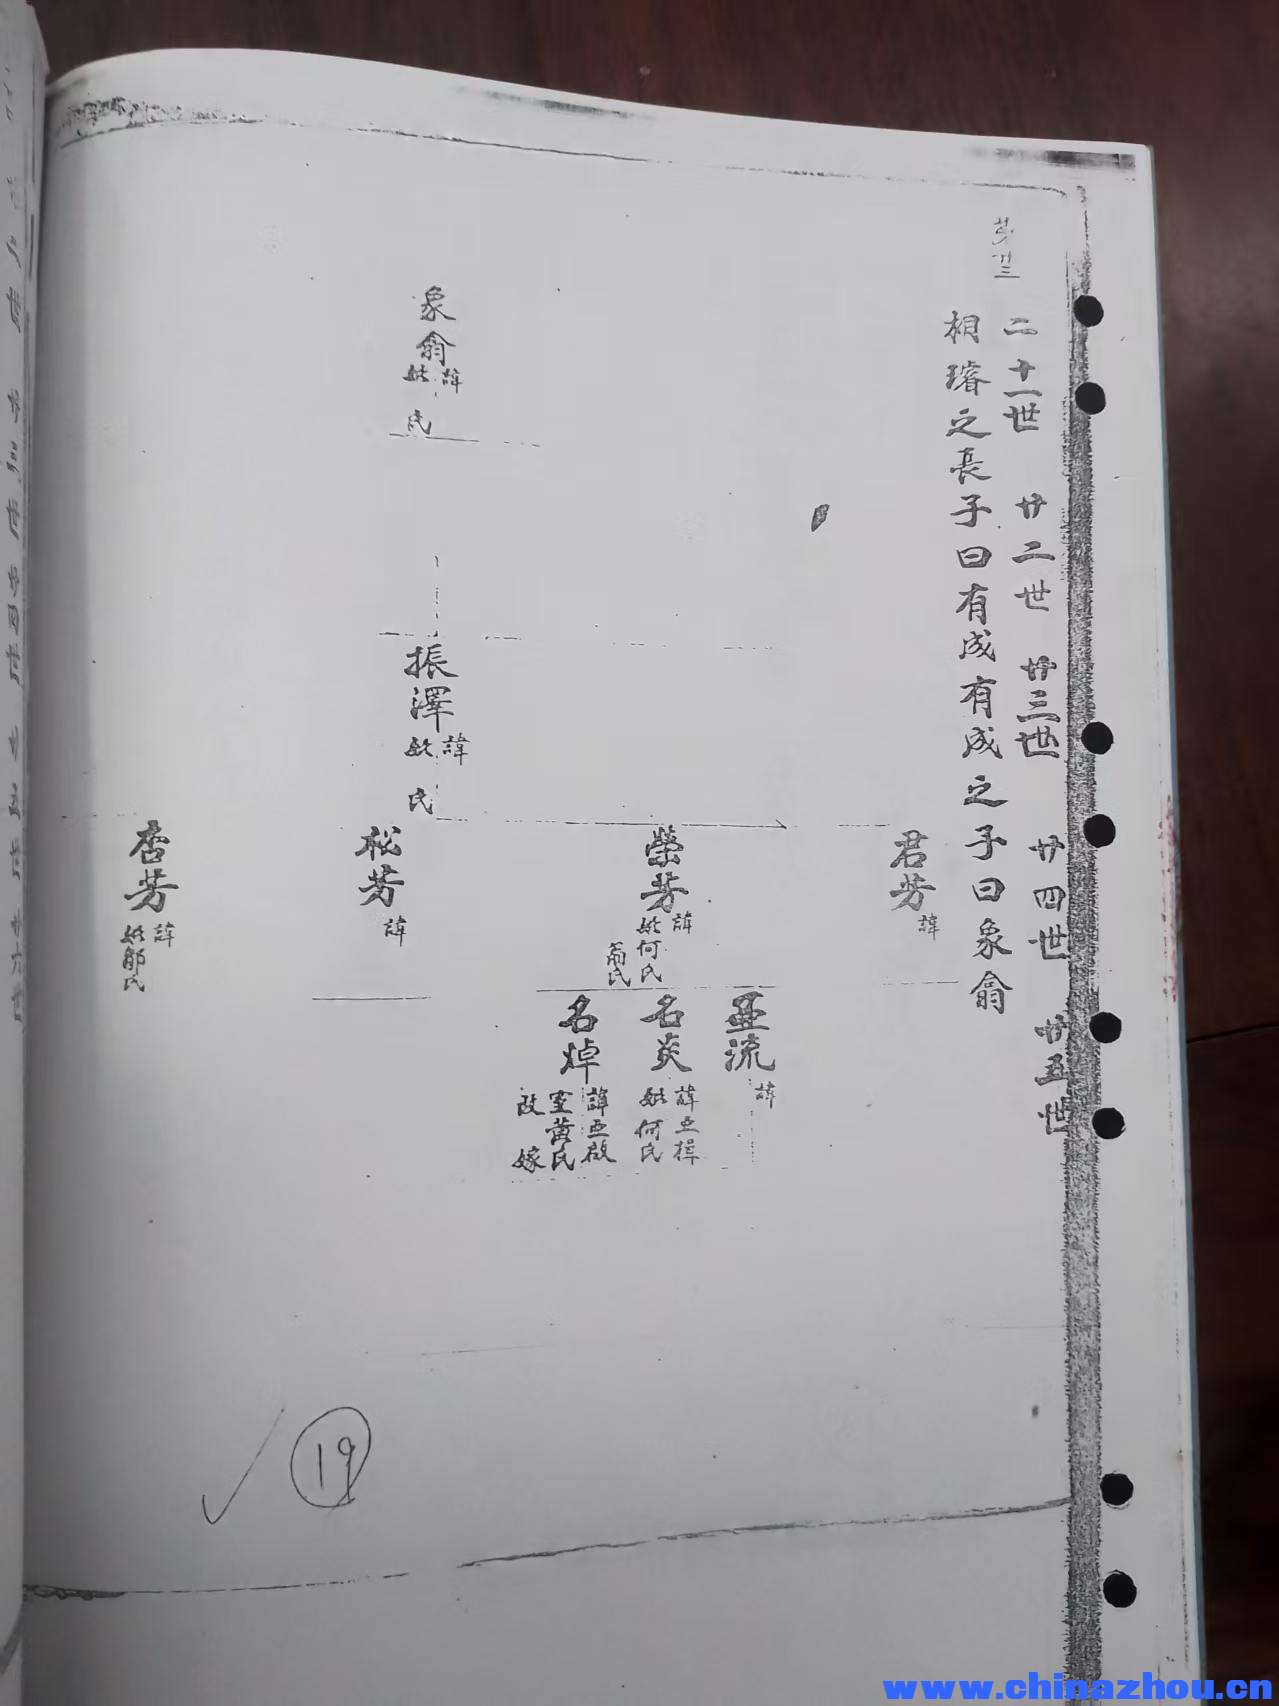 二十一世 廿二世 廿三世 廿四世 廿五世
相璿之長子曰有成有成之子曰象翕
象翕
諱
妣 氏
振澤
諱
妣 氏
君芳
諱
榮芳
諱
妣何氏
氏
松芳
諱
杏芳
諱
妣鄒氏
亜流
諱
名炎
諱亜楫
妣何氏
名焯
諱亜啟
室黃氏
改嫁
世 廿三世 廿四世 廿五世 廿六世
19
www.chinazhou.cn